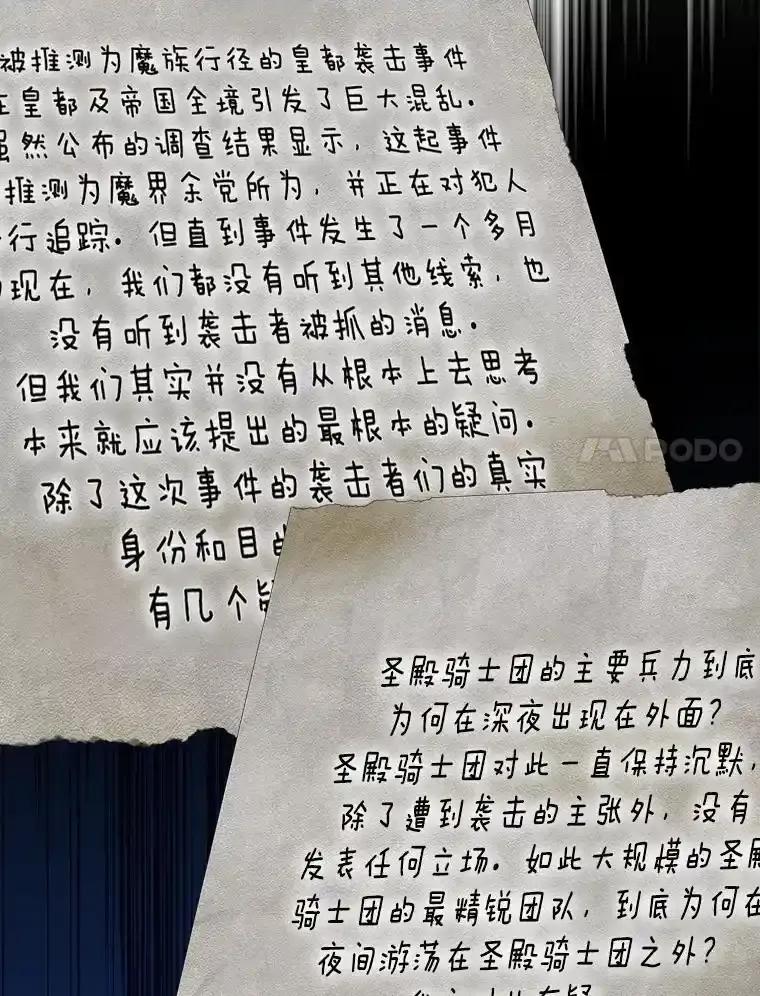 被推测为魔族行径的皇都袭击事件
在皇都及帝国全境引发了巨大混乱.
虽然公布的调查结果显示, 这起事件
推测为魔界余党所为, 并正在对犯人
行追踪. 但直到事件发生了一个多月
现在, 我们都没有听到其他线索, 也
没有听到袭击者被抓的消息.
但我们其实并没有从根本上去思考
本来就应该提出的最根本的疑问.
除了这次事件的袭击者们的真实
身份和目
有几个
PODO
圣殿骑士团的主要兵力到底
为何在深夜出现在外面?
圣殿骑士团对此一直保持沉默,
除了遭到袭击的主张外, 没有
发表任何立场. 如此大规模的圣殿
骑士团的最精锐团队, 到底为何在
夜间游荡在圣殿骑士团之外?